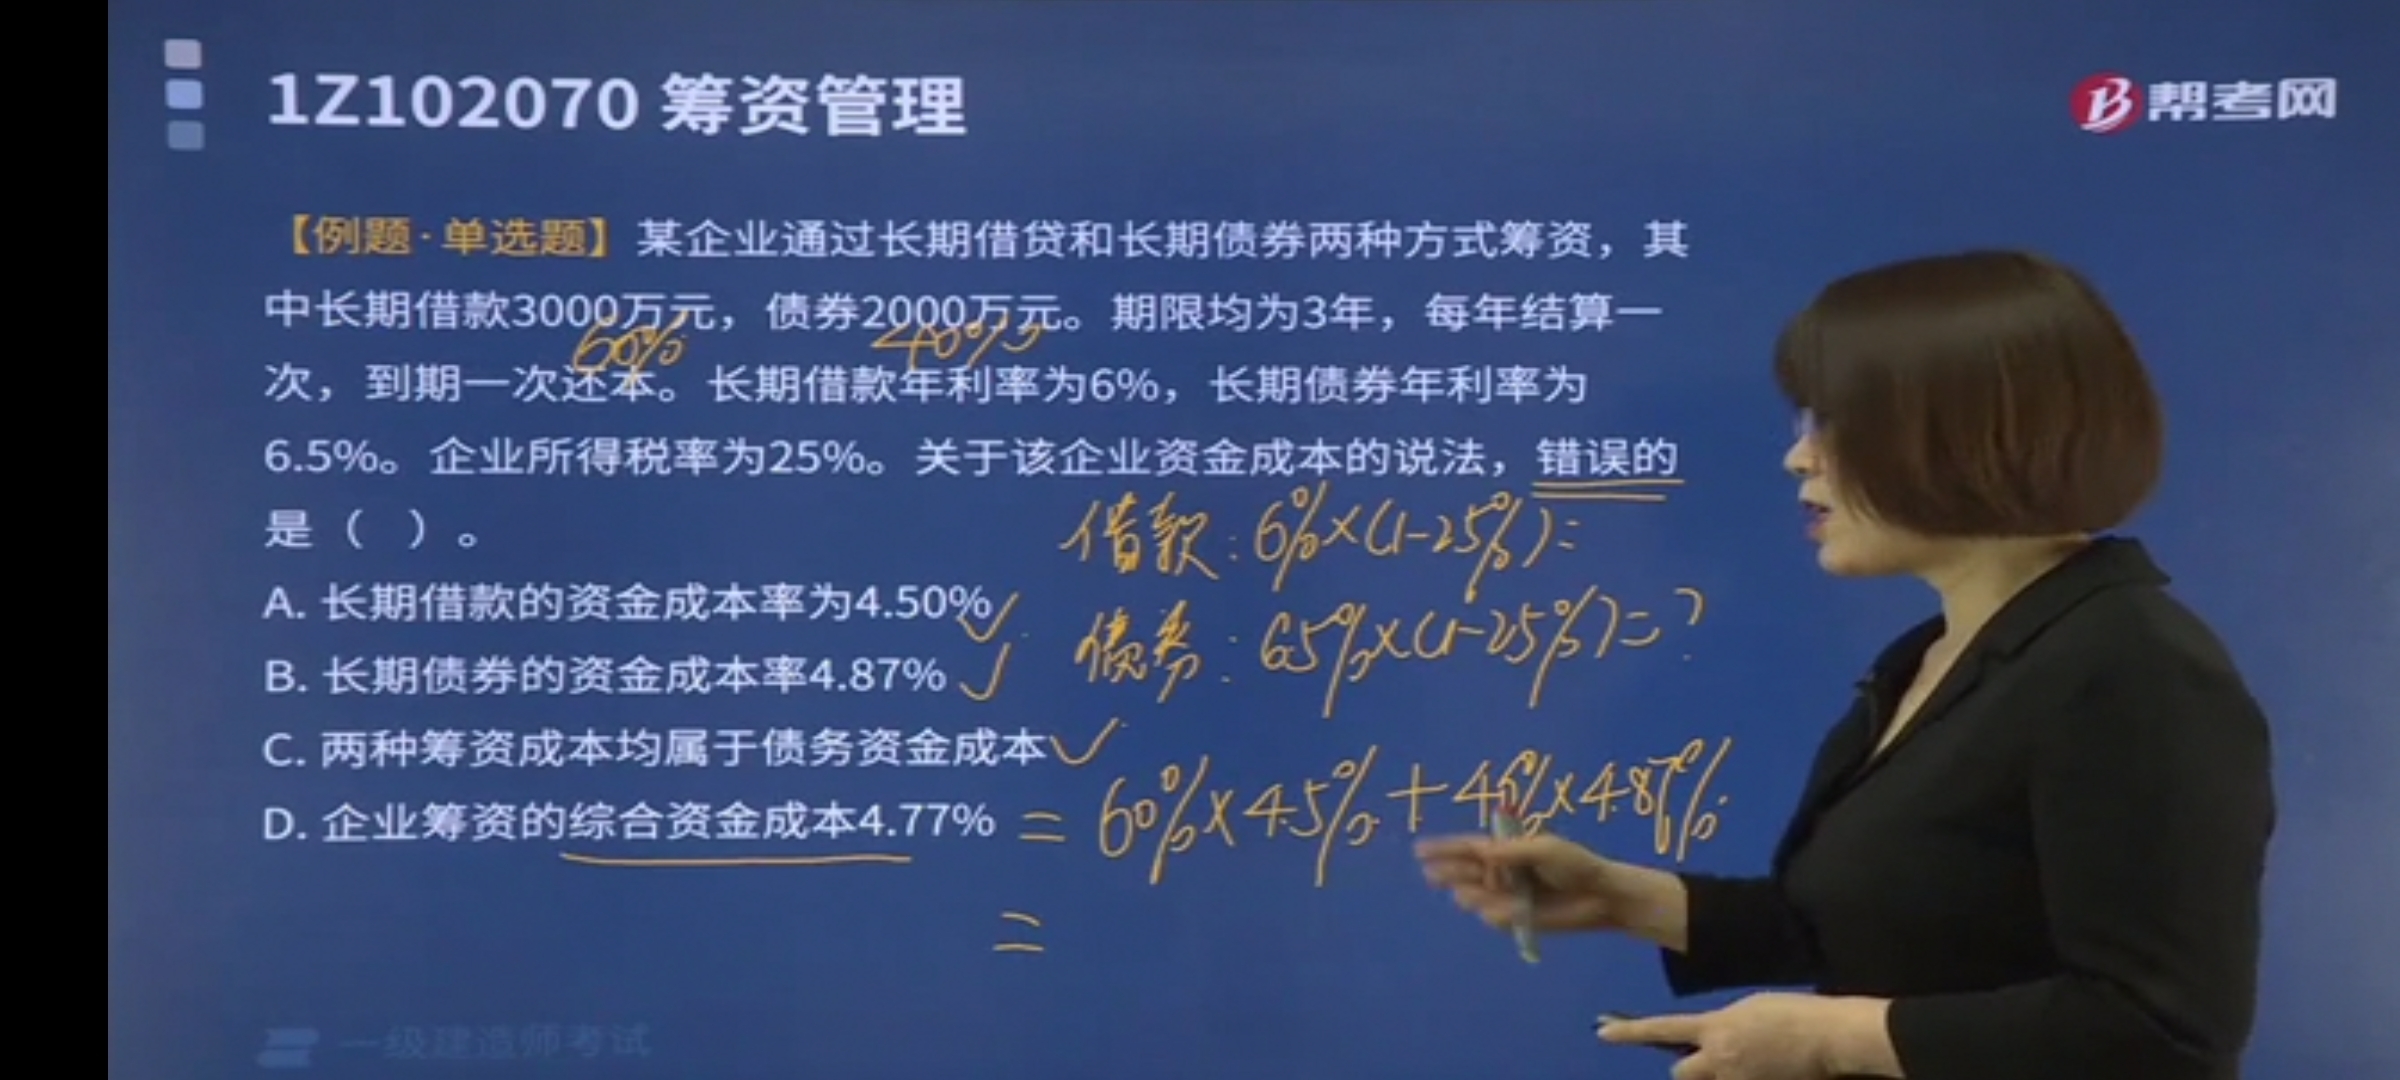 1Z102070 筹资管理
帮考网
【例题·单选题】某企业通过长期借贷和长期债券两种方式筹资，其
中长期借款3000万元，债券2000万元。期限均为3年，每年结算一
60% 40%
次，到期一次还本。长期借款年利率为6%，长期债券年利率为
6.5%。企业所得税率为25%。关于该企业资金成本的说法，错误的
是（ ）。
借款：6%×(1-25%)=
A. 长期借款的资金成本率为4.50%
债券：6.5%×(1-25%)=?
B. 长期债券的资金成本率4.87%
C. 两种筹资成本均属于债务资金成本
D. 企业筹资的综合资金成本4.77% = 60%×4.5%+40%×4.87%
=
一级建造师考试